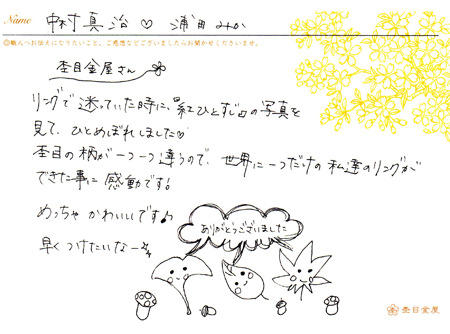 Name 中村真治 ♡ 浦田みか
◎職人へお伝えになりたいこと、ご感想などございましたらお聞かせくださいませ。
杢目金屋さん
リングで迷っていた時に、"紅ひとすじ"の写真を
見て、ひとめぼれしました♡
杢目の柄が一つ一つ違うので、世界に一つだけの私達のリングが
できた事に感動です!
めっちゃかわいいです♪
早くつけたいなー☆
ありがとうございました
杢目金屋